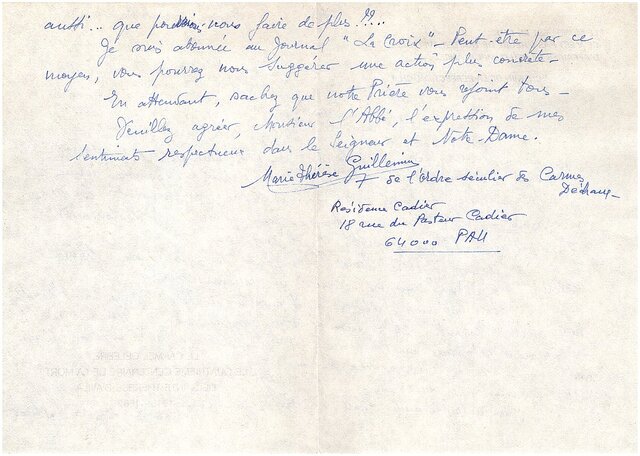 aussi... que pourrions-nous faire de plus !?...
Je suis abonnée au Journal "La Croix" - Peut-être par ce
moyen, vous pourrez nous suggérer une action plus concrète -
En attendant, sachez que notre Prière vous rejoint tous -
Veuillez agréer, Monsieur l'Abbé, l'expression de mes
sentiments respectueux dans le Seigneur et Notre-Dame.
Marie Thérèse Guillemin
de l'Ordre séculier des Carmes
Déchaux -
Résidence Cadier
18 rue du Pasteur Cadier
64000 PAU